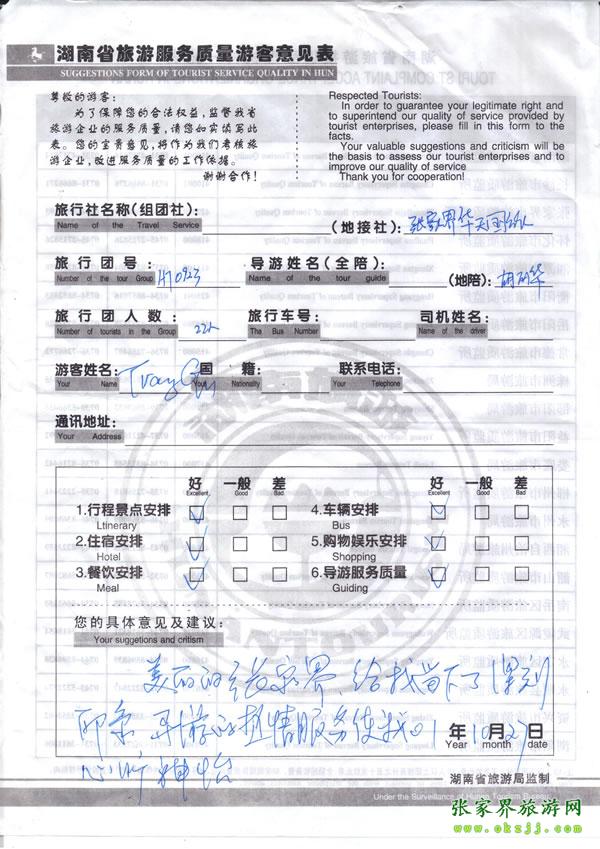 湖南省旅游服务质量游客意见表
SUGGESTIONS FORM OF TOURIST SERVICE QUALITY IN HUN
尊敬的游客：
为了保障您的合法权益，监督我省
旅游企业的服务质量，请您如实填写此
表。您的宝贵意见，将作为我们考核旅
游企业，改进服务质量的工作依据。
谢谢合作！
Respected Tourists:
In order to guarantee your legitimate right and
to superintend our quality of service provided by
tourist enterprises, please fill in this form to the
facts.
Your valuable suggestions and criticism will
be the basis to assess our tourist enterprises and to
improve our quality of service
Thank you for cooperation!
旅行社名称(组团社)： (地接社)： 张家界华天国旅
Name of the Travel Service
旅行团号： H0923 导游姓名(全陪)： (地陪)：
Number of the tour Group Name of the tour guide
旅行团人数： 22人 旅行车号： 司机姓名：
Number of tourists in the Group The Bus Number Name of the driver
游客姓名： Tracy 国籍： 联系电话：
Your Name Your Nationality Your Telephone
通讯地址：
Your Address
好 一般 差 好 一般 差
Excellent Good Bad Excellent Good Bad
1.行程景点安排 4.车辆安排
Ltinerary Bus
2.住宿安排 5.购物娱乐安排
Hotel Shopping
3.餐饮安排 6.导游服务质量
Meal Guiding
您的具体意见及建议：
Your suggetions and critism
美丽的张家界、给我留下了深刻
印象 导游的热情服务使我
年 10月27日
Year month date
湖南省旅游局监制
Under the Surveillance of Hunan Tourism Bureau
张家界旅游网
www.okzjj.com